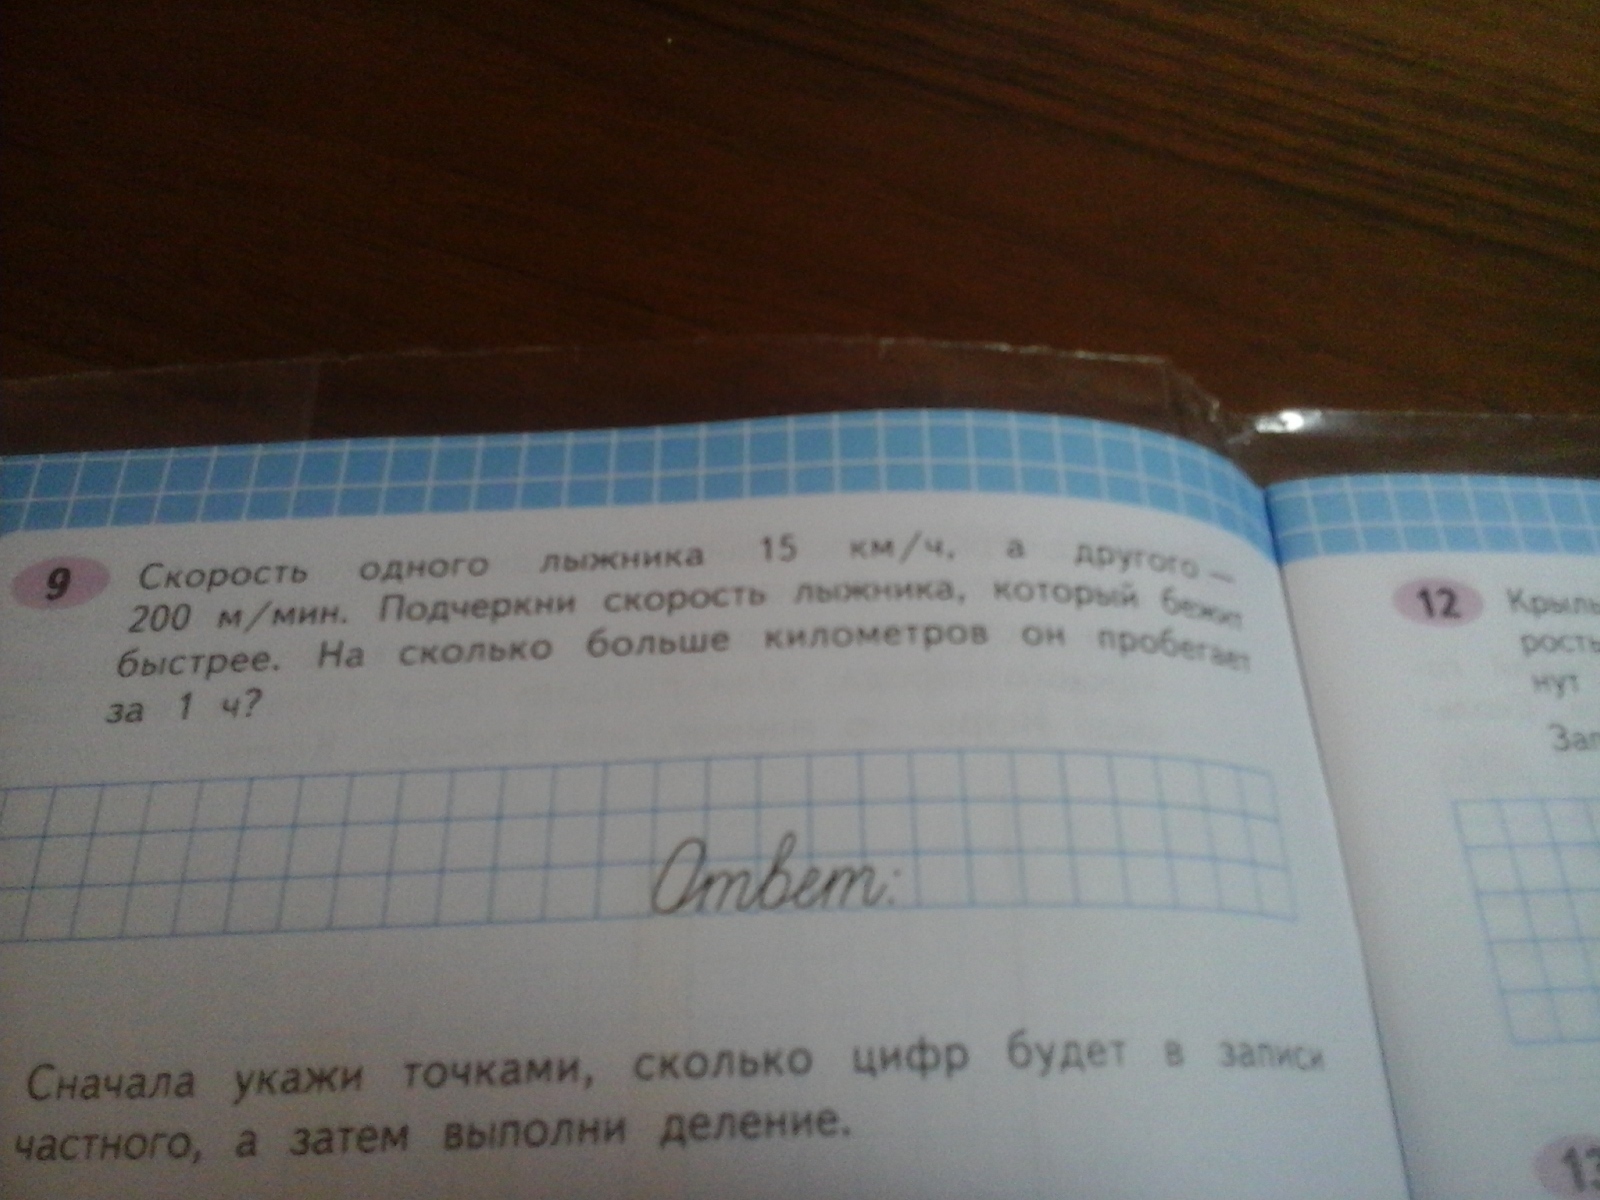 9 Скорость одного лыжника 15 км/ч, а другого —
200 м/мин. Подчеркни скорость лыжника, который бежит
быстрее. На сколько больше километров он пробегает
за 1 ч?
Ответ:
Сначала укажи точками, сколько цифр будет в записи
частного, а затем выполни деление.
12 Крыль
рость
нут
Зап
13